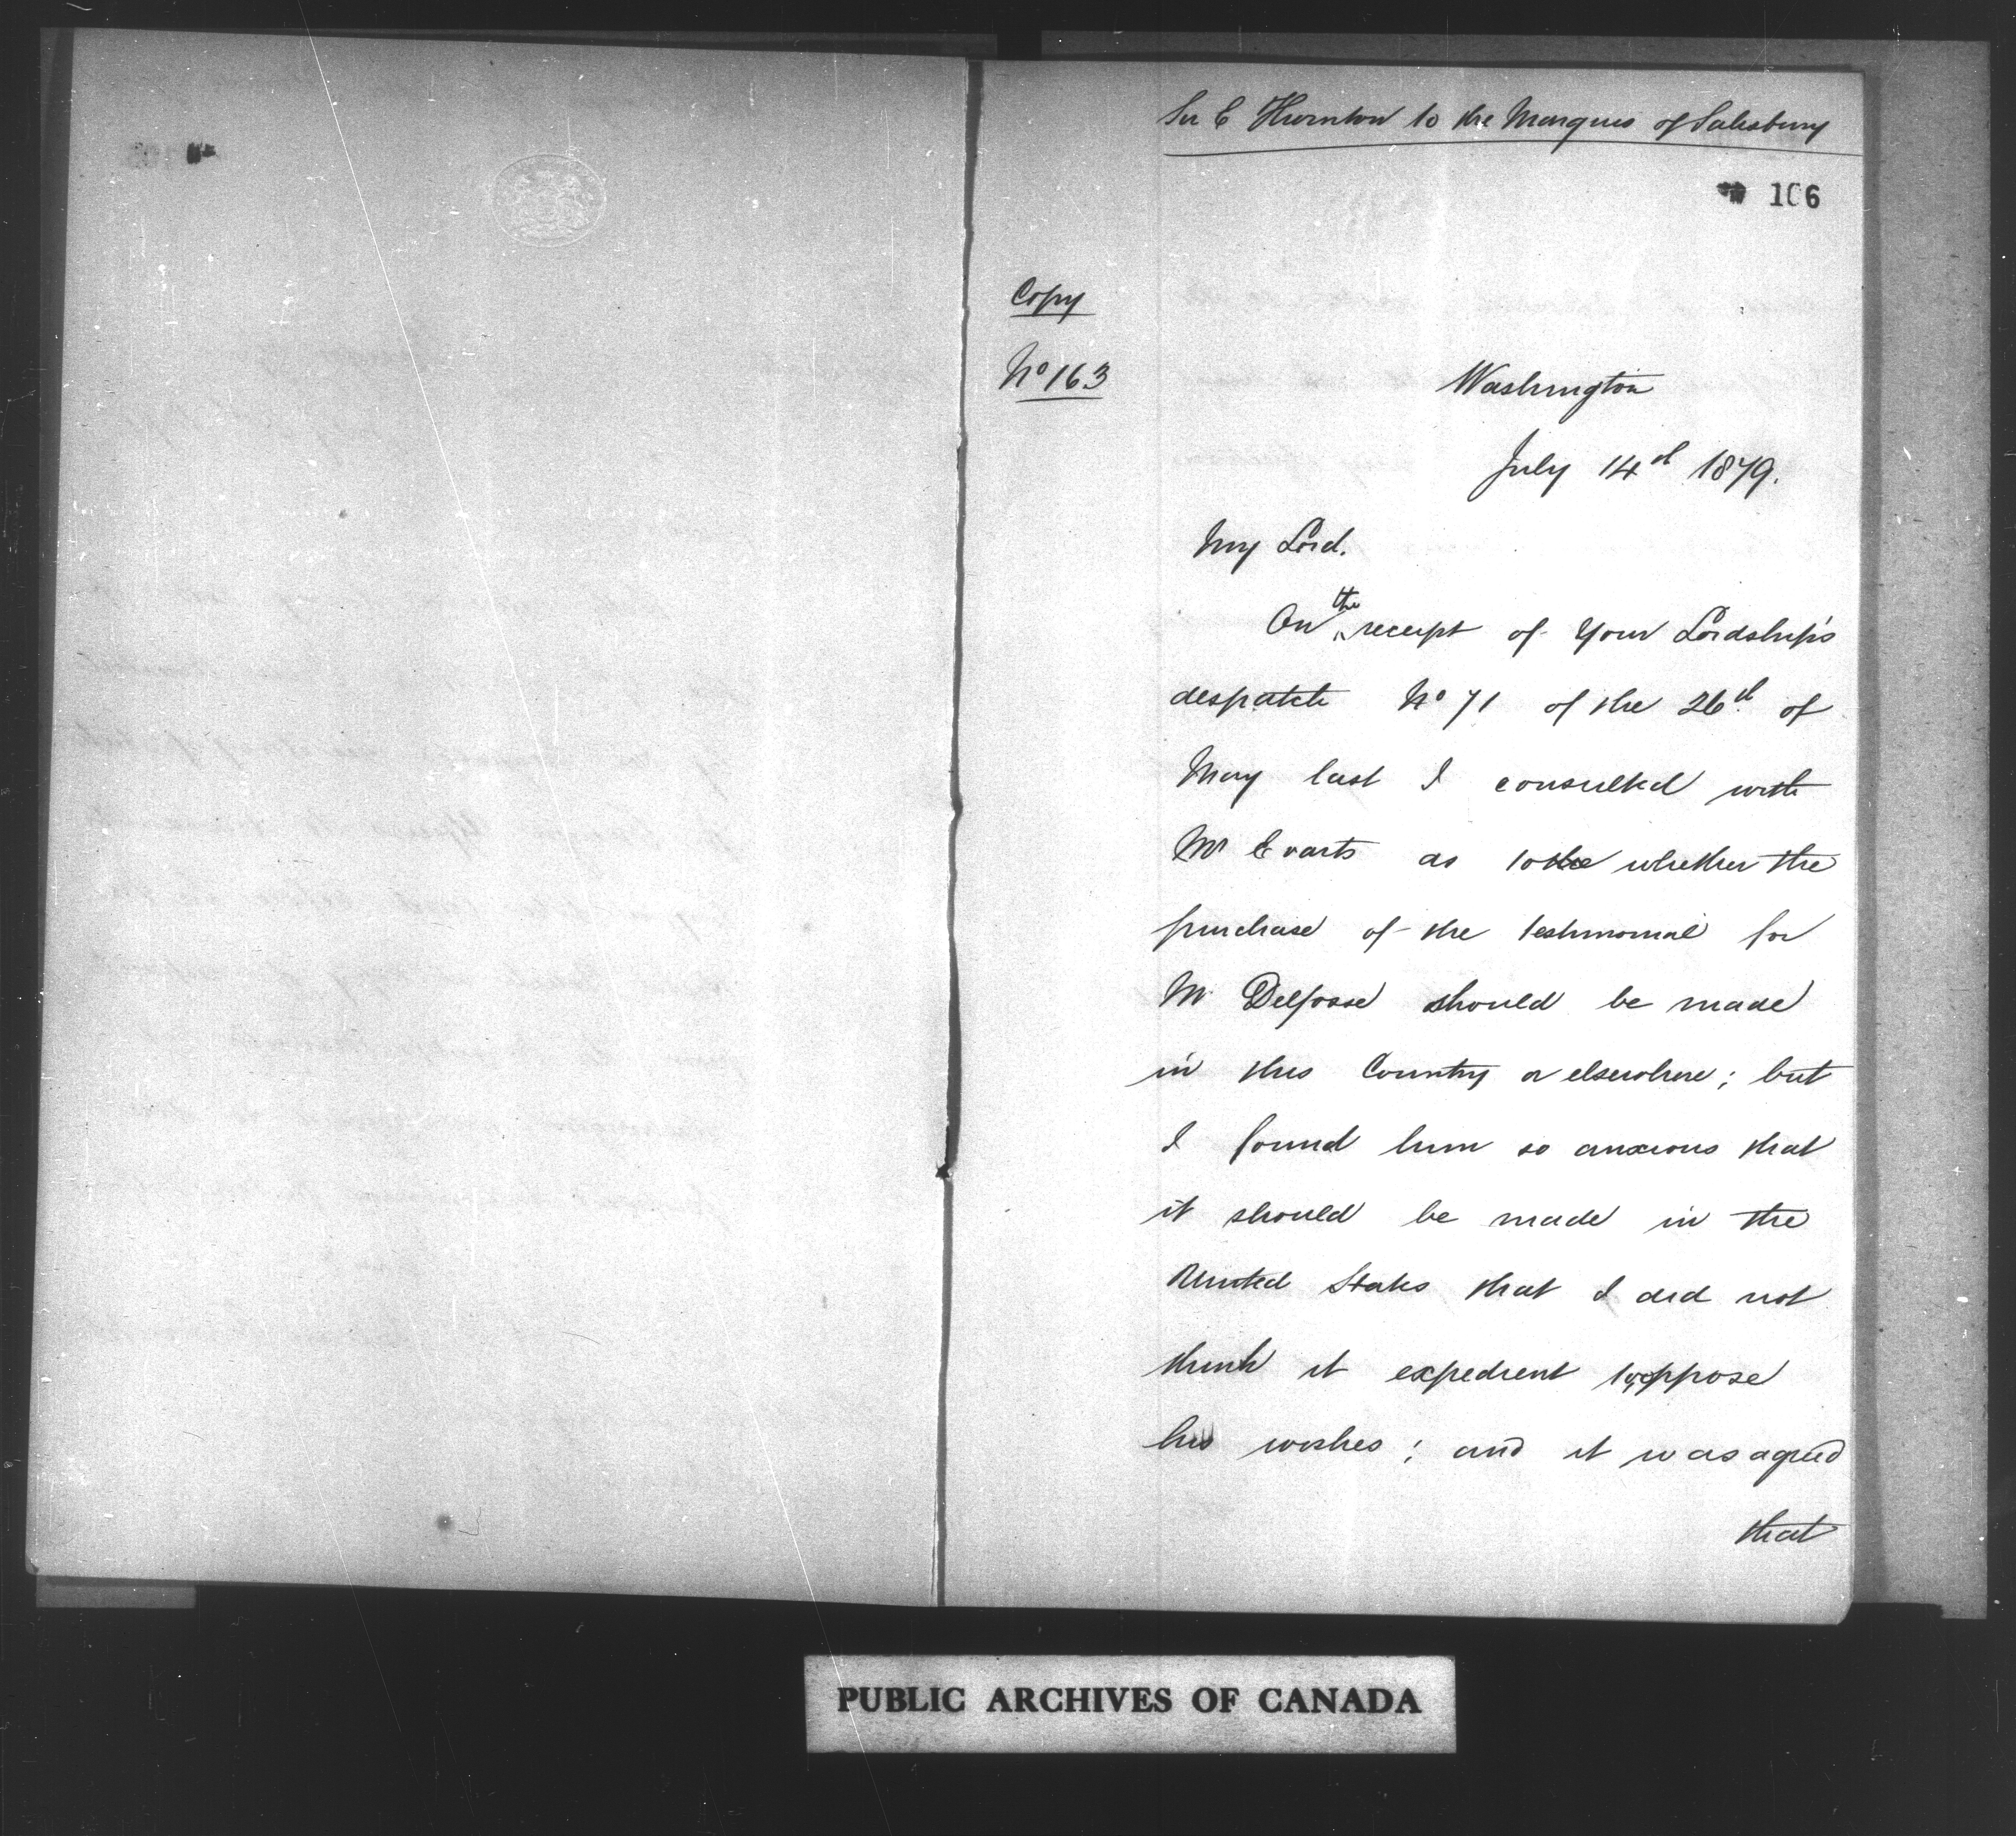 Sir E Thornton to the Marquis of Salisbury
106
Copy
No 163
Washington
July 14th 1879.
My Lord.
On the receipt of Your Lordship's
despatch No 71 of the 26th of
May last I consulted with
Mr Evarts as to the whether the
purchase of the testimonial for
Mr Delfosse should be made
in this Country or elsewhere; but
I found him so anxious that
it should be made in the
United States that I did not
think it expedient to oppose
his wishes; and it was agreed
that
PUBLIC ARCHIVES OF CANADA